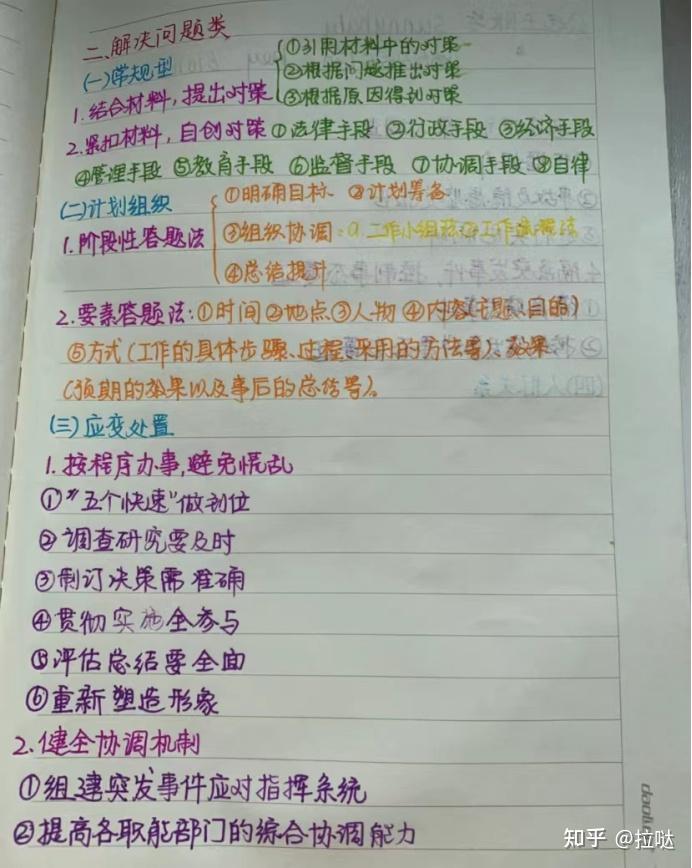 二、解决问题类
(一)常规型
①引用材料中的对策
②根据问题推出对策
③根据原因得到对策
1.结合材料,提出对策
2.紧扣材料,自创对策①法律手段 ②行政手段 ③经济手段
④管理手段 ⑤教育手段 ⑥监督手段 ⑦协调手段 ⑧自律
(二)计划组织
1.阶段性答题法
①明确目标、②计划筹备
③组织协调:a.工作小组法②工作流程法
④总结提升
2.要素答题法:①时间②地点③人物④内容(主题、目的)
⑤方式(工作的具体步骤、过程、采用的方法等)、效果
(预期的效果以及事后的总结等)。
(三)应变处置
1.按程序办事,避免慌乱
①"五个快速"做到位
②调查研究要及时
③制订决策需准确
④贯彻实施全参与
⑤评估总结要全面
⑥重新塑造形象
2.健全协调机制
①组建突发事件应对指挥系统
②提高各职能部门的综合协调能力
知乎 @拉哒